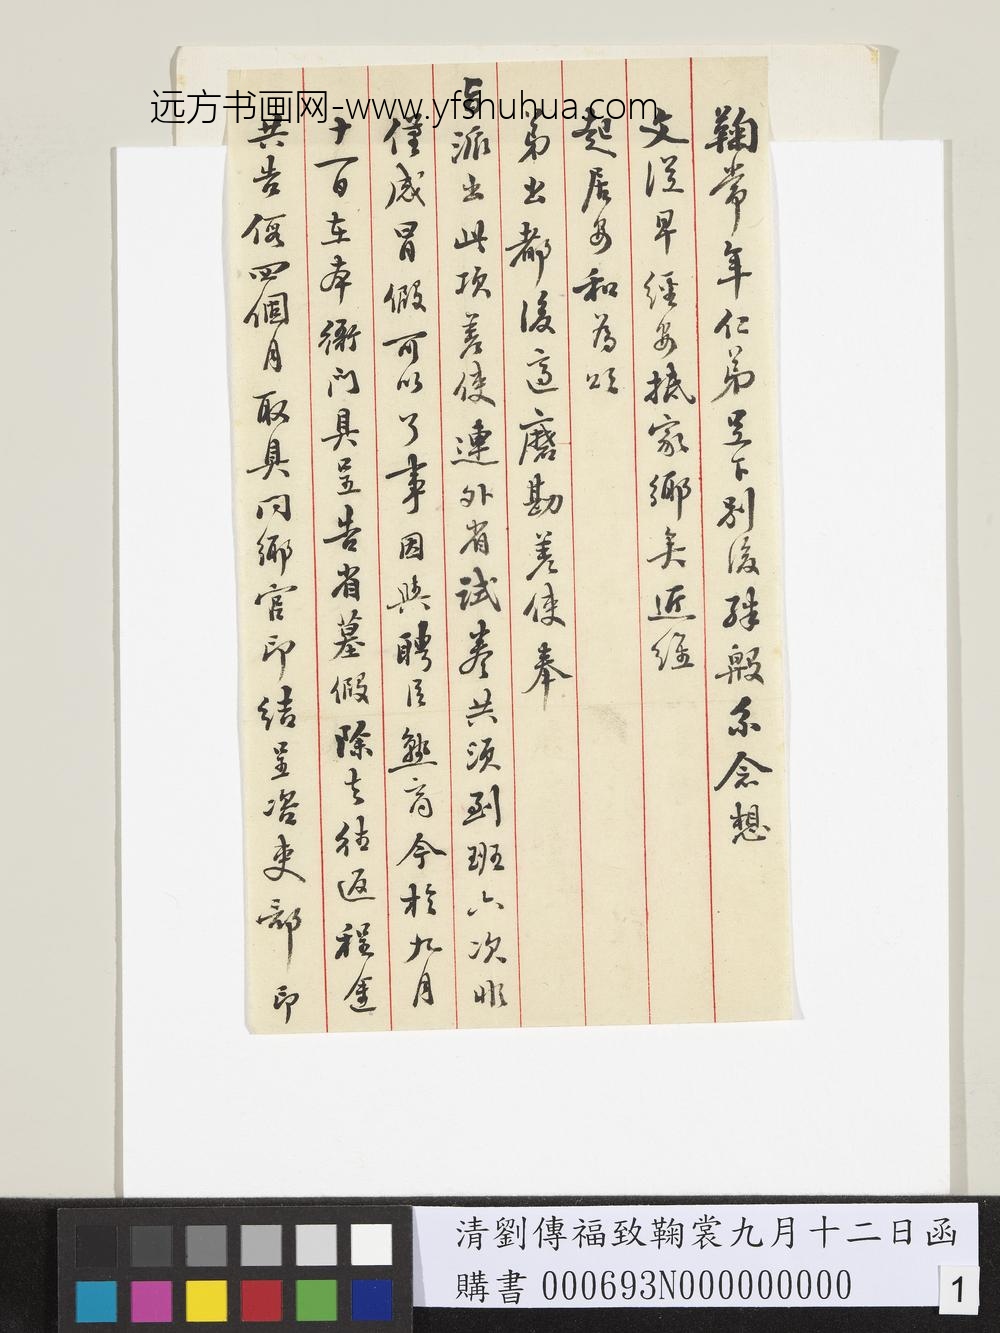 远方书画网-www.yfshuhua.com
鞠常年仁弟足下别後殊殷系念想
文從早經安抵家鄉矣近維
起居安和為頌
弟出都後適磨勘差使奉
与派出此項差使連外省試卷共須到班六次非
僅感冒假可以了事因與聘臣熟商今於九月
十一日在本衙門具呈告省墓假除去往返程途
共告假四個月取具同鄉官印結呈咨吏部印
清劉傳福致鞠裳九月十二日函
購書 000693N000000000
1